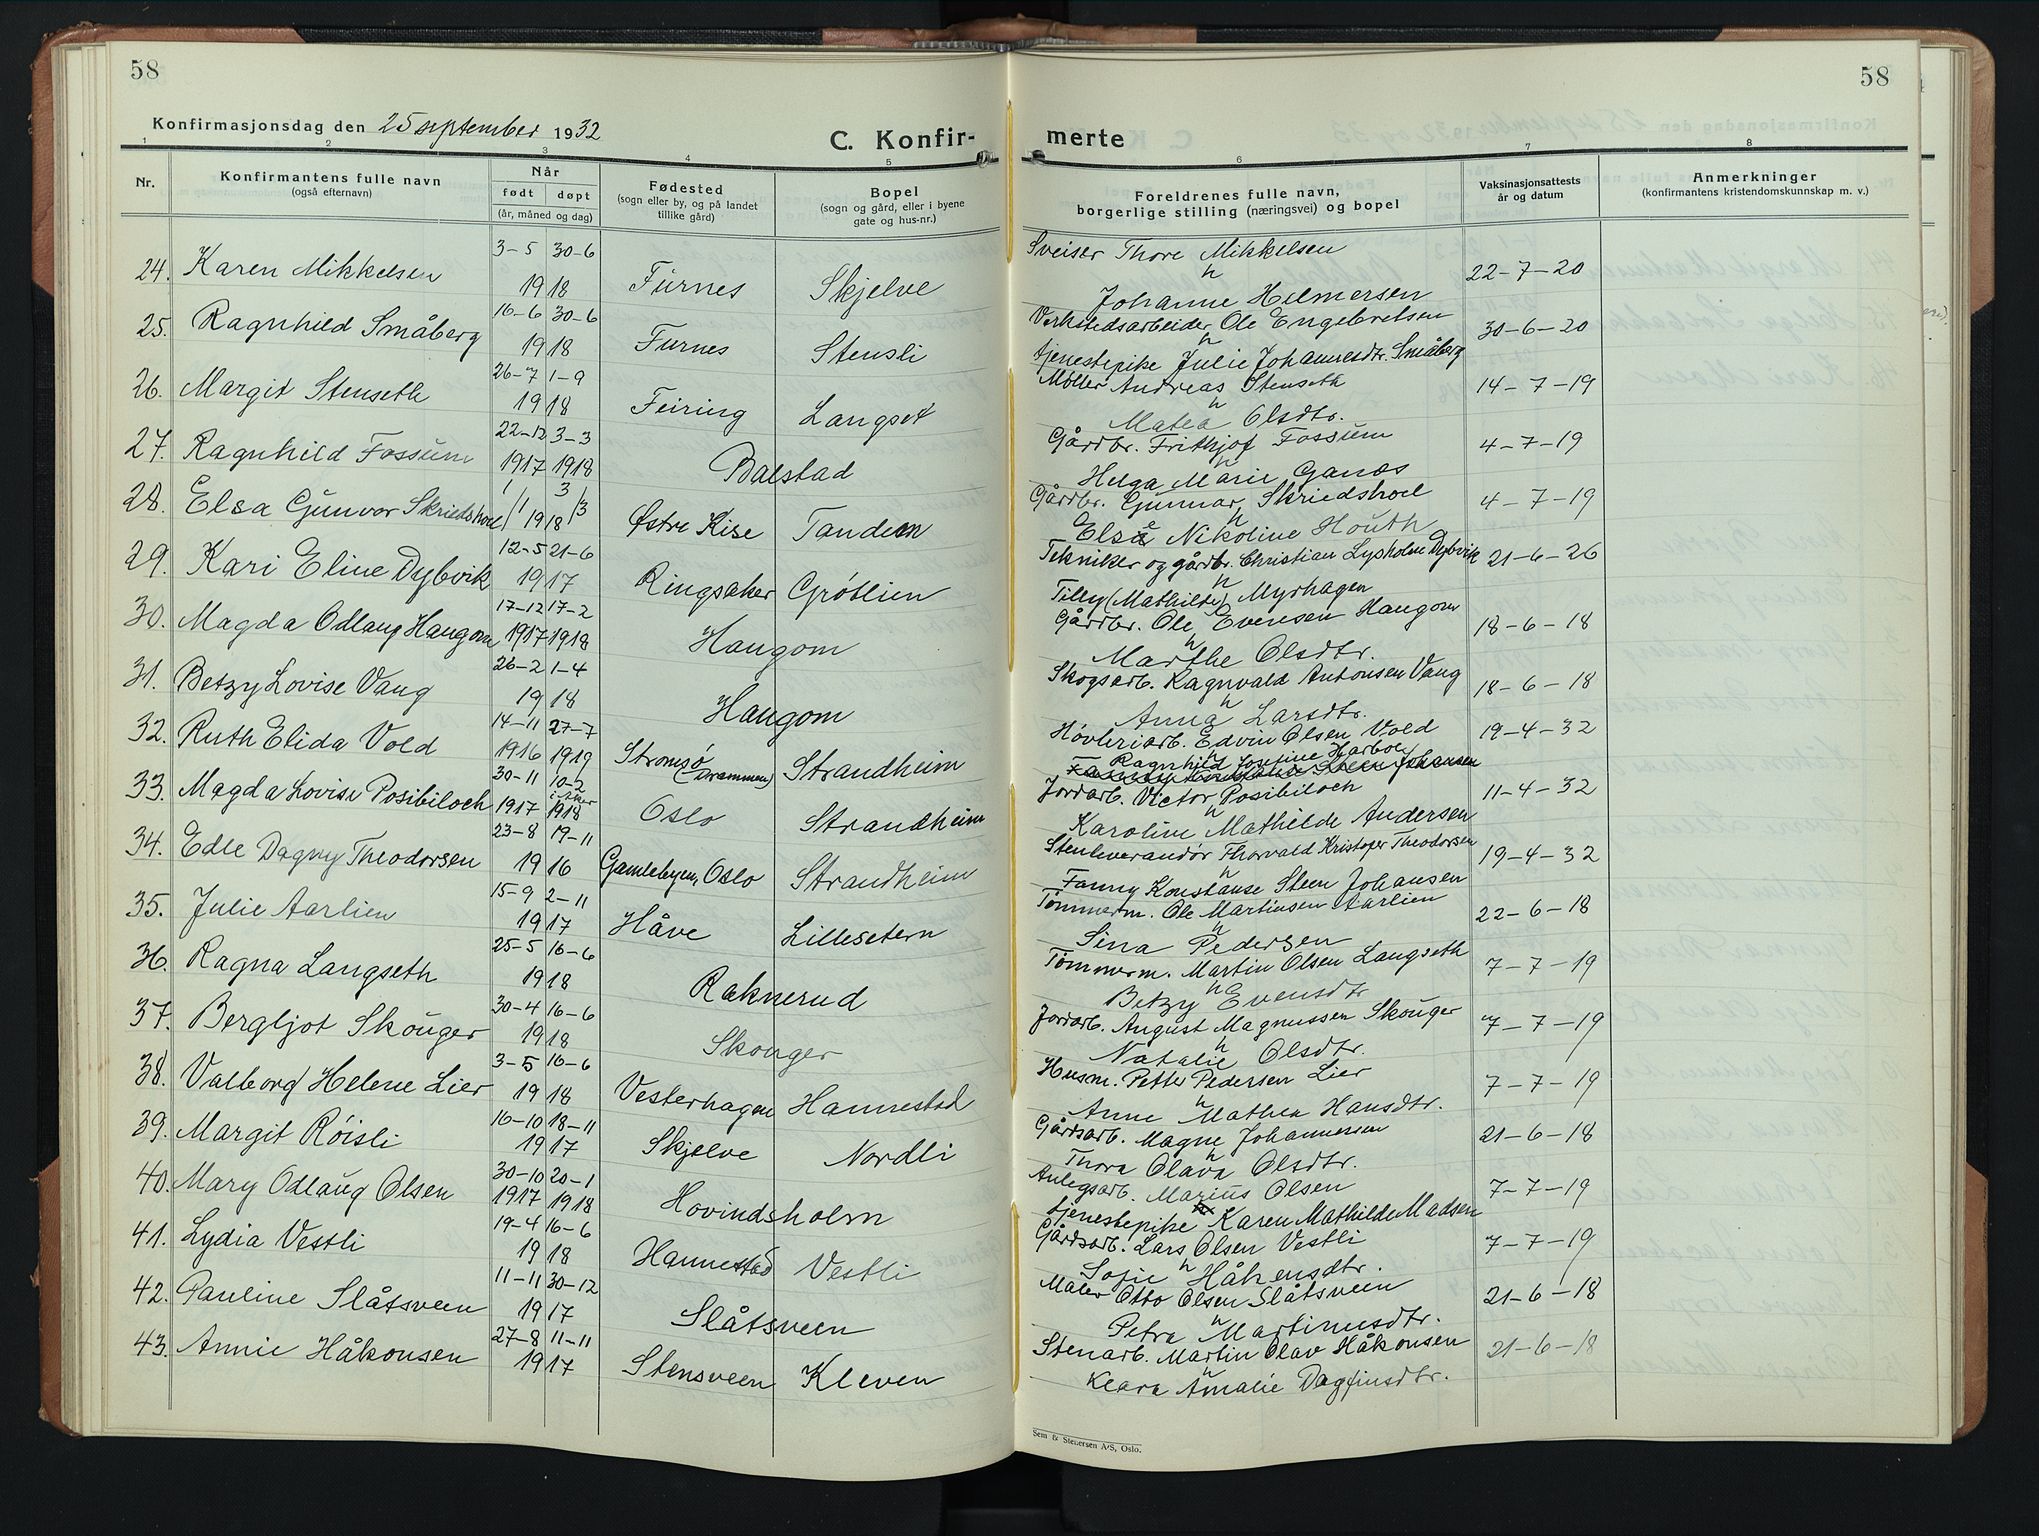 58
58
Konfirmasjonsdag den 25 september 1932
C. Konfir-
merte
1 2 3 4 5 6 7 8
Nr.
Konfirmantens fulle navn
(også efternavn)
Når
født døpt
(år, måned og dag)
Fødested
(sogn eller by, og på landet
tillike gård)
Bopel
(sogn og gård, eller i byene
gate og hus-nr.)
Foreldrenes fulle navn,
borgerlige stilling (næringsvei) og bopel
Vaksinasjonsattests
år og datum
Anmerkninger
(konfirmantens kristendomskunnskap m. v.)
24. Karen Mikkelsen 3-5 30-6 1918 Furnes Skjelve Sveiser Thore Mikkelsen 22-7-20
h
Johanne Helmersen
25. Ragnhild Småberg 16-6 30-6 1918 Furnes Stensli Verkstedsarbeider Ole Engebretsen 30-6-20
h
tjenestepike Julie Johannesdtr. Småberg
26. Margit Stenseth 26-7 1-9 1918 Feiring Langset Møller Andreas Stenseth 14-7-19
h
Matea Olsdtr.
27. Ragnhild Fossum 22-12 3-3 1917 1918 Balstad Gårdbr. Frithjof Fossum 4-7-19
h
Helga Marie Ganæs
28. Elsa Gunvor Skriedshoel 1/1 3/3 1918 Østre Kise Tandem Gårdbr. Gunnar Skriedshoel 4-7-19
h
Else Nikoline Houth
29. Kari Eline Dybvik 12-5 21-6 1917 Ringsaker Grötlien Tekniker og gårdbr. Christian Lysholm Dybvik 21-6-26
h
Tilly (Mathilde) Myrhagen
30. Magda Odlaug Haugom 17-12 17-2 1917 1918 Haugom Gårdbr. Ole Evensen Haugom 18-6-18
h
Marthe Olsdtr.
31. Betzy Lovise Vang 26-2 1-4 1918 Haugom Skogsarb. Ragnvald Antonsen Vang 18-6-18
h
Anna Larsdtr.
32. Ruth Elida Vold 14-11 27-7 1916 1919 Strømsø (Drammen) Strandheim Høvleriarb. Edvin Olsen Vold 19-4-32
h
Ragnhild Jovine Harboe
33. Magda Lovise Posibiloch 30-11 10-2 i Aker 1917 1918 Oslo Strandheim Jordarb. Victor Posibiloch 11-4-32
h
Karoline Mathilde Andersen
34. Edle Dagny Theodorsen 23-8 19-11 1916 Gamlebyen, Oslo Strandheim Stenleverandør Thorvald Kristofer Theodorsen 19-4-32
h
Fanny Konstanse Steen Johansen
35. Julie Aarlien 15-9 2-11 1917 Håve Lillesetern Tømmerm. Ole Martinsen Aarlien 22-6-18
h
Sina Pedersen
36. Ragna Langseth 25-5 16-6 1918 Raknerud Tømmerm. Martin Olsen Langseth 7-7-19
h
Betzy Evensdtr
37. Bergljot Skouger 30-4 16-6 1918 Skouger Jordarb. August Magnussen Skouger 7-7-19
h
Natalie Olsdtr.
38. Valborg Helene Lier 3-5 16-6 1918 Vesterhagen Hannestad Husm. Petter Pedersen Lier 7-7-19
h
Anne Mathea Hansdtr.
39. Margit Röisli 16-10 18-11 1917 Skjelve Nordli Gårdsarb. Magne Johannessen 21-6-18
h
Thora Olava Olsdtr.
40. Mary Odlaug Olsen 30-10 20-1 1917 1918 Hovindsholm Anlegsarb. Marius Olsen 7-7-19
tjenestepike Karen Mathilde Madsen
41. Lydia Vestli 19-4 16-6 1918 Hannestad Vestli Gårdsarb. Lars Olsen Vestli 7-7-19
h
Sofie Håkensdtr.
42. Pauline Slåtsveen 11-11 30-12 1917 Slåtsveen Maler Otto Olsen Slåtsveen 21-6-18
h
Petra Martinusdtr.
43. Annie Håkonsen 27-8 11-11 1917 Stensveen Kleven Stenarb. Martin Olav Håkonsen 21-6-18
h
Klara Amalie Dagfinsdtr.
Sem & Stenersen A/S, Oslo.